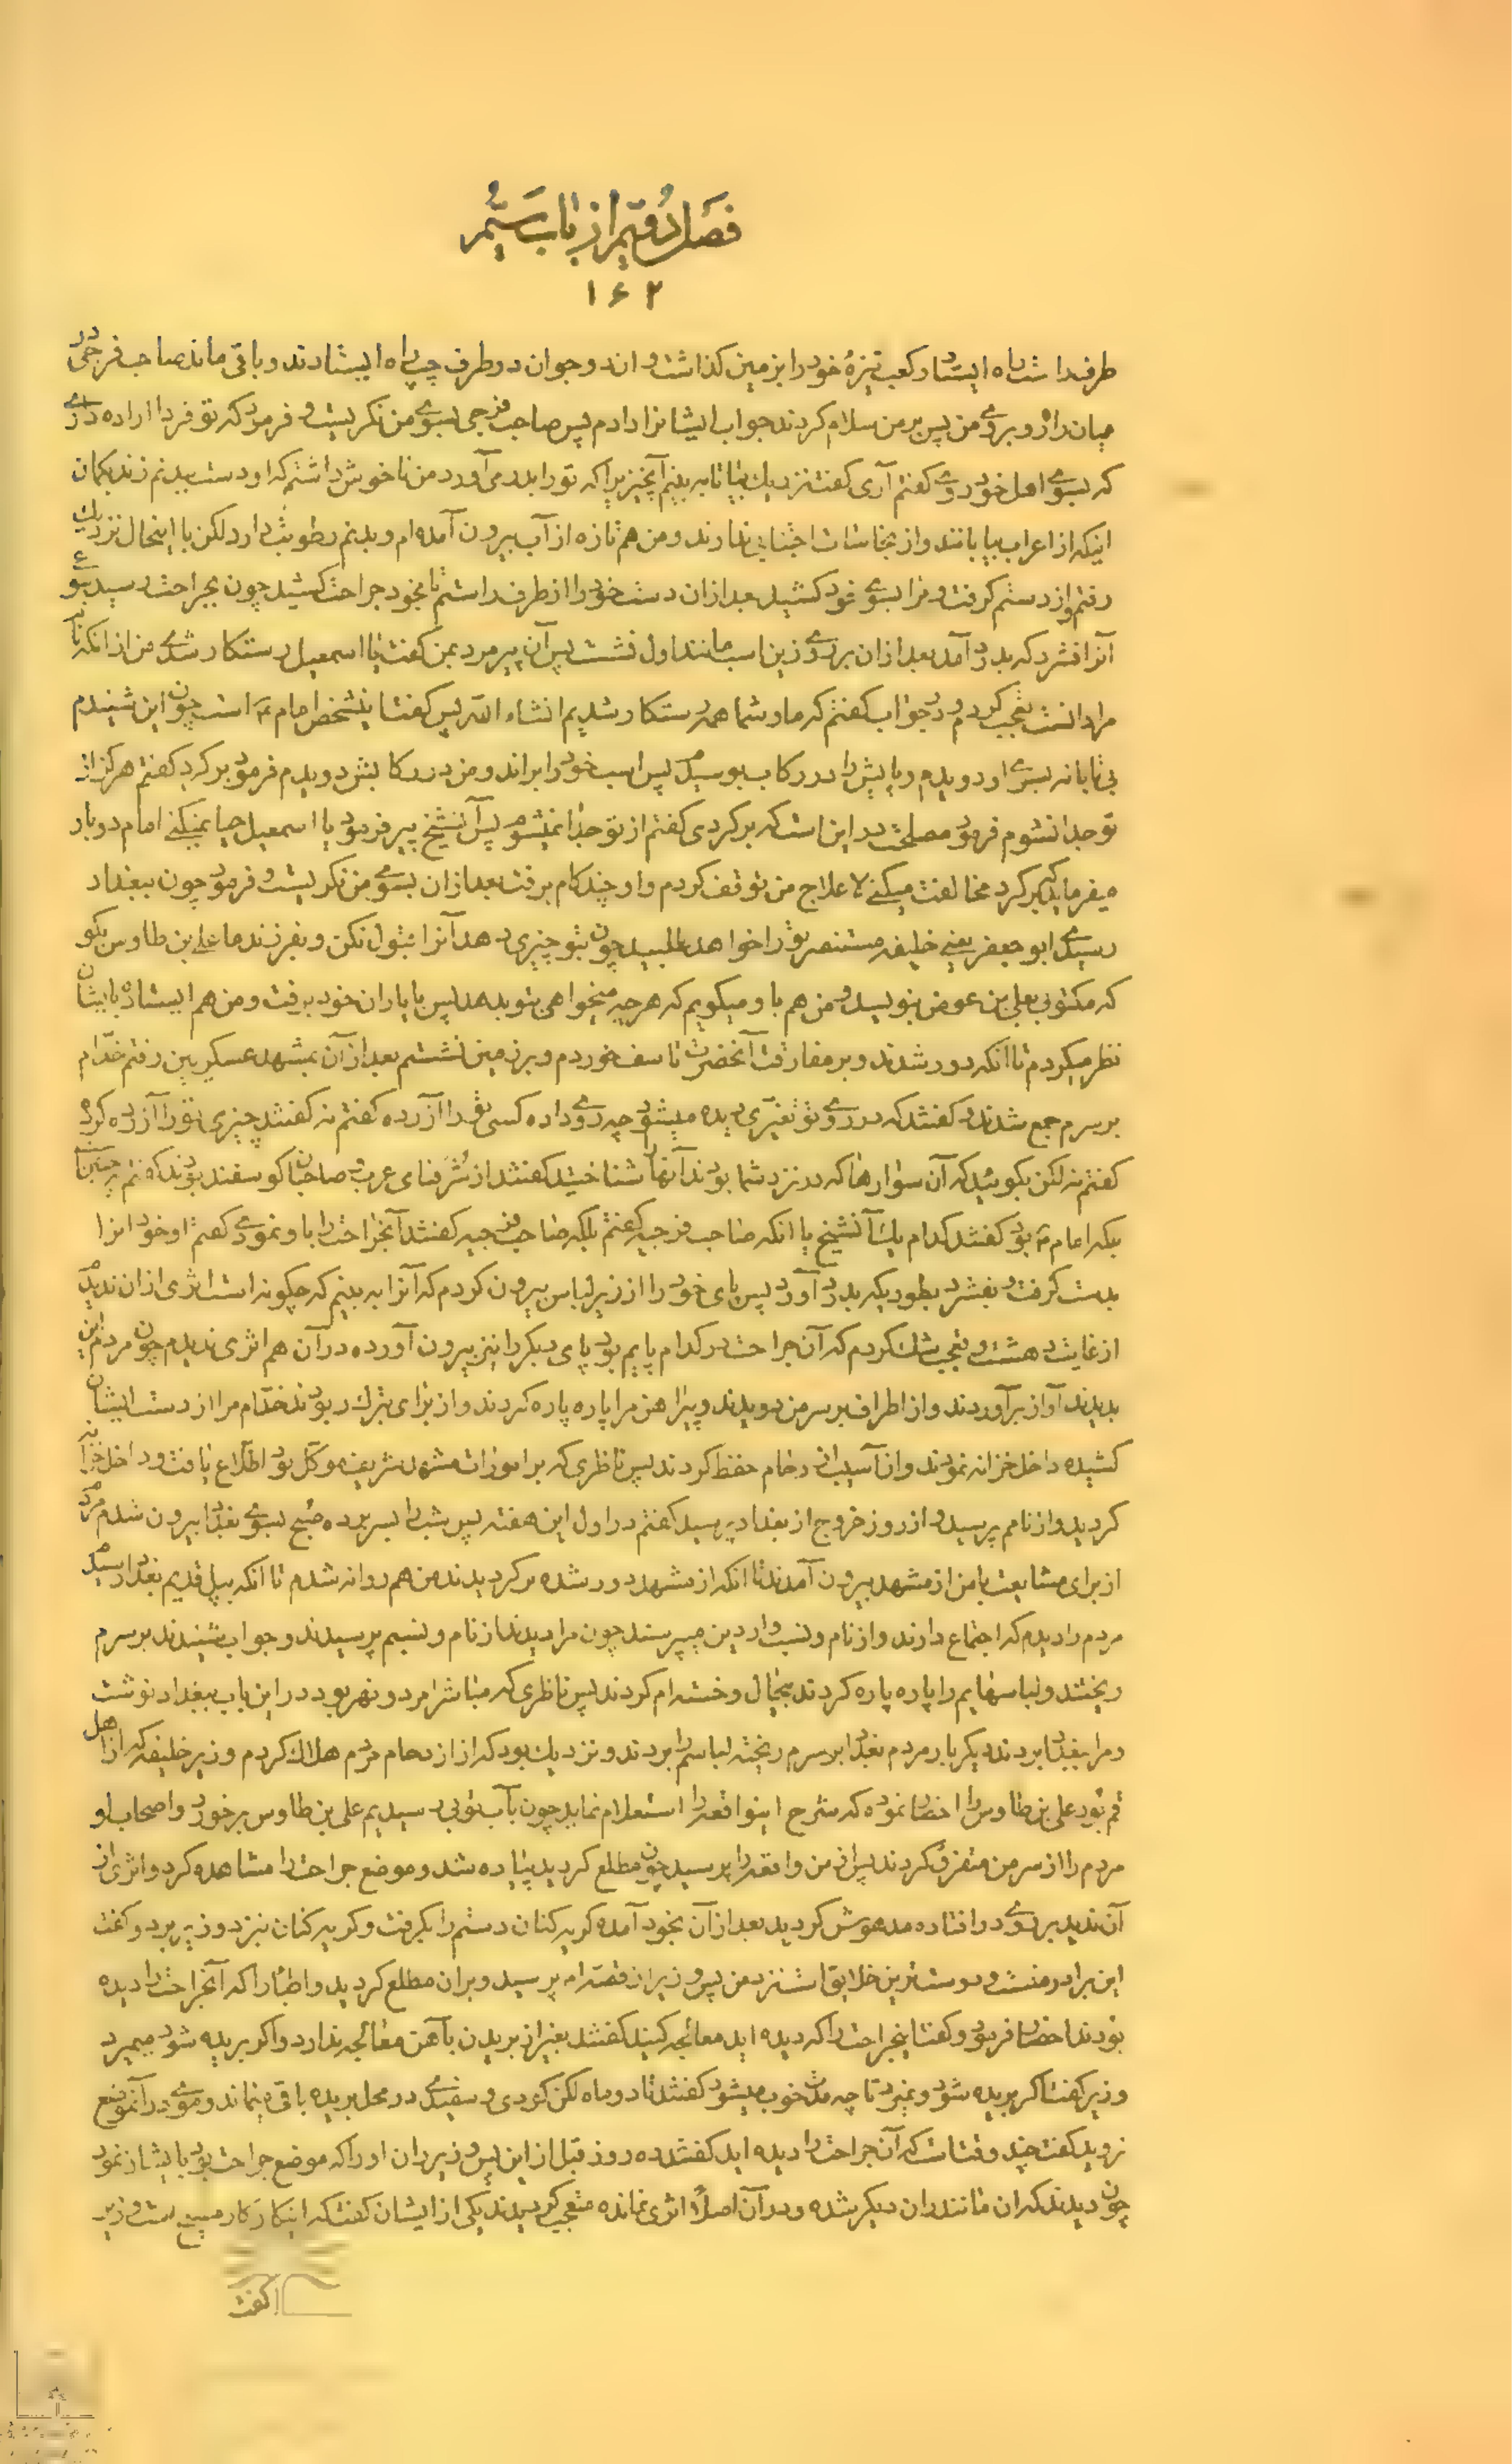 فصل دویم از باب ششم
۱۶۲
طرف راست راه ایستاد و کعب نیزهٔ خود را بزمین کذاشت و ان دو جوان در طرف چپ راه ایستادند و باقی ماند صاحب فرجی در
میان راه و بروی من پس بر من سلام کردند جواب ایشانرا دادم پس صاحب فرجی بسوی من نکریست و فرمود که تو فردا اراده داری
که بسوی اهل خود روی کفتم آری کفت نزدیك بیا تا به بینم آنچیزیرا که تو را بدرد می‌آورد من ناخوش داشتم که او دست ببدنم زند بکمان
اینکه از اعراب بیابانند و از نجاسات اجتنابی ندارند و من هم تازه از آب بیرون آمده‌ام و بدنم رطوبت دارد لکن با اینحال نزدیك
رفتم و از دستم کرفت و مرا بسوی خود کشید بعد از ان دست خود را از طرف راستم تا بخود جراحت کشید چون بجراحت رسید بنوعی
آنرا فشرد که بدرد آمد بعد از ان بر روی زین اسب مانند اول نشست پس آن پیر مرد بمن کفت یا اسمعیل رستکار شدی من از انکه نام
مرا دانست تعجب کردم و در جواب کفتم که ما و شما همه رستکار شدیم انشاء الله پس کفت اینشخص امام ع است چون این شنیدم
بی‌تابانه بسوی او دویدم و پایش را در رکاب بوسیدم پس اسب خود را براند و من در رکابش دویدم فرمود برکرد کفتم هرکز از
تو جدا نشوم فرمود مصلحت در این است که برکردی کفتم از تو جدا نمیشوم پس آنشیخ پیر فرمود یا اسمعیل حیا نمیکنی امام دو بار
میفرماید که برکرد مخالفت میکنی لا علاج من توقف کردم و او چند کام برفت بعد از ان بسوی من نکریست و فرمود چون ببغداد
رسیدی ابو جعفر یعنی خلیفه مستنصر تو را خواهد طلبید چون بتو چیزی دهد آنرا قبول نکن و بفرزند ما علی بن طاوس بکو
که مکتوبی بعلی بن عوض بنویسد و من هم باو میکویم که هر چه میخواهی بتو بدهد پس با یاران خود برفت و من هم ایستاده بایشان
نظر میکردم تا انکه دور شدند و بر مفارقت آنحضرت تاسف خوردم و بر زمین نشستم بعد از آن بمشهد عسکریین رفتم خدّام
بر سرم جمع شدند و کفتند که در روی تو تغیّری دیده میشود چه روی داده کسی تو را آزرده کفتم نه کفتند چیزی تو را آزرده کرده
کفتم نه لکن بکوئید که آن سوارها که در نزد شما بودند آنها را شناختید کفتند از شرفای عرب و صاحبان کوسفند بودند کفتم نه چنین است
بلکه امام ع بود کفتند کدام یك آنشیخ یا انکه صاحب فرجیه کفتم بلکه صاحب فرجیه کفتند آنجراحت را باو نمودی کفتم او خود انرا
بدست کرفت و بفشرد بطوریکه بدرد آورد پس پای خود را از زیر لباس بیرون کردم که آنرا به بینم که چکونه است اثری از ان ندیدم
از غایت دهشت و تعجب شك کردم که آن جراحت در کدام پایم بود پای دیکر را نیز بیرون آورده در آن هم اثری ندیدم چون مردم این
بدیدند آواز برآوردند و از اطراف بر سر من دویدند و پیراهن مرا پاره پاره کردند و از برای تبرك ربودند خدّام مرا از دست ایشان
کشیده داخل خزانه نمودند و از آسیب ازدحام حفظ کردند پس ناظری که بر امورات مشهد شریف موکل بود اطلاع یافت و داخل خزانه
کردید و از نامم پرسید و از روز خروج از بغداد پرسید کفتم در اول این هفته پس شب را بسر برده صبح بسوی بغداد بیرون شدم مردم
از برای مشایعت با من از مشهد بیرون آمدند تا انکه از مشهد دور شده برکردیدند من هم روانه شدم تا انکه بپل قدیم بغداد رسیدم
مردم را دیدم که اجتماع دارند و از نام و نسب واردین میپرسند چون مرا دیدند از نام و نسبم پرسیدند و جواب شنیدند بر سرم
ریختند و لباسهایم را پاره پاره کردند بیحال و خسته‌ام کردند پس ناظری که مباشر امر دو نهر بود در این باب ببغداد نوشت
و مرا ببغداد بردند دیکر بار مردم بغداد بر سرم ریخته لباسم را بردند و نزدیك بود که از ازدحام مردم هلاك کردم و زیر خلیفه که از اهل
قم بود علی بن طاوس را احضار نموده که شرح اینواقعه را استعلام نماید چون بآب نوبی رسیدیم علی بن طاوس برخورد و اصحاب او
مردم را از سر من متفرق کردند پس از من واقعه را پرسید چون مطلع کردید پیاده شد و موضع جراحت را مشاهده کرد و اثری از
آن ندید بر روی در افتاده مدهوش کردید بعد از آن بخود آمده کریه کنان دستم را بکرفت و کریه کنان نزد وزیر برد و کفت
این برادر منست و دوست‌ترین خلایق است نزد من پس وزیر از قصّه‌ام پرسید و بران مطلع کردید و اطبّا را که آنجراحت را دیده
بودند احضار فرمود و کفت اینجراحت را که دیده اید معالجه کنید کفتند بغیر از بریدن بآهن معالجه ندارد و اکر بریده شود میمیرد
وزیر کفت اکر بریده شود و نمیرد تا چه مدت خوب میشود کفتند تا دو ماه لکن کودی و سفیدی در محل بریده باقی میماند و موی در آنموضع
نروید کفت چند وقت است که آن جراحت را دیده اید کفتند ده روز قبل از این پس وزیر ران او را که موضع جراحت بود بایشان نمود
چون دیدند که ران مانند ران دیکر شده و در آن اصلاً اثری نمانده متعجب کردیدند یکی از ایشان کفت که اینکار کار مسیح است وزیر
کفت